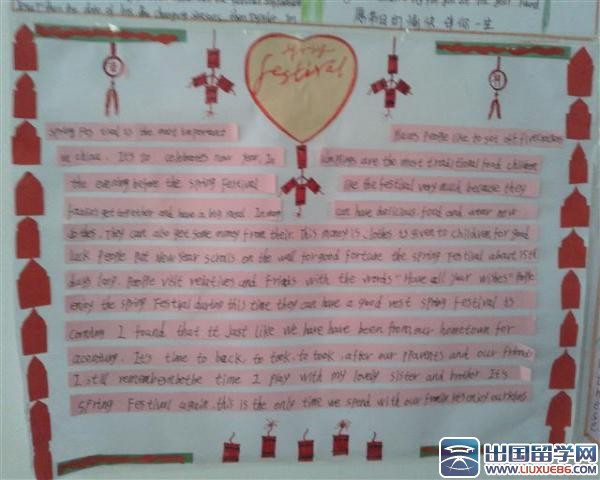 festival
Spring Fes tival is the most important
in china. It's to celebrates new year. In
the evening before the spring Festival
families get together and have a big meal. In many
places People like to set off firecrackers
Dumplings are the most traditional food children
like the festival very much because they
can have delicious food and wear new
clothes. They can also get some money from their. This money is given to children for good
luck People put New year scrolls on the wall for good fortune the spring festival about 15th
days long. People visit relatives and frinds with the words "Have all your wishes" People
enjoy the spring Festival during this time they can have a good rest spring festival is
coming I found that it just like we have have been from our hometown for
a century. It's time to back, to took, to took, after our parents and our friends
I still remember the time I play with my lovely sister and brother It's
spring Festival again. this is the only time we spend with our family let's enjoy ourselves.
出国留学网
www.liuxue86.com